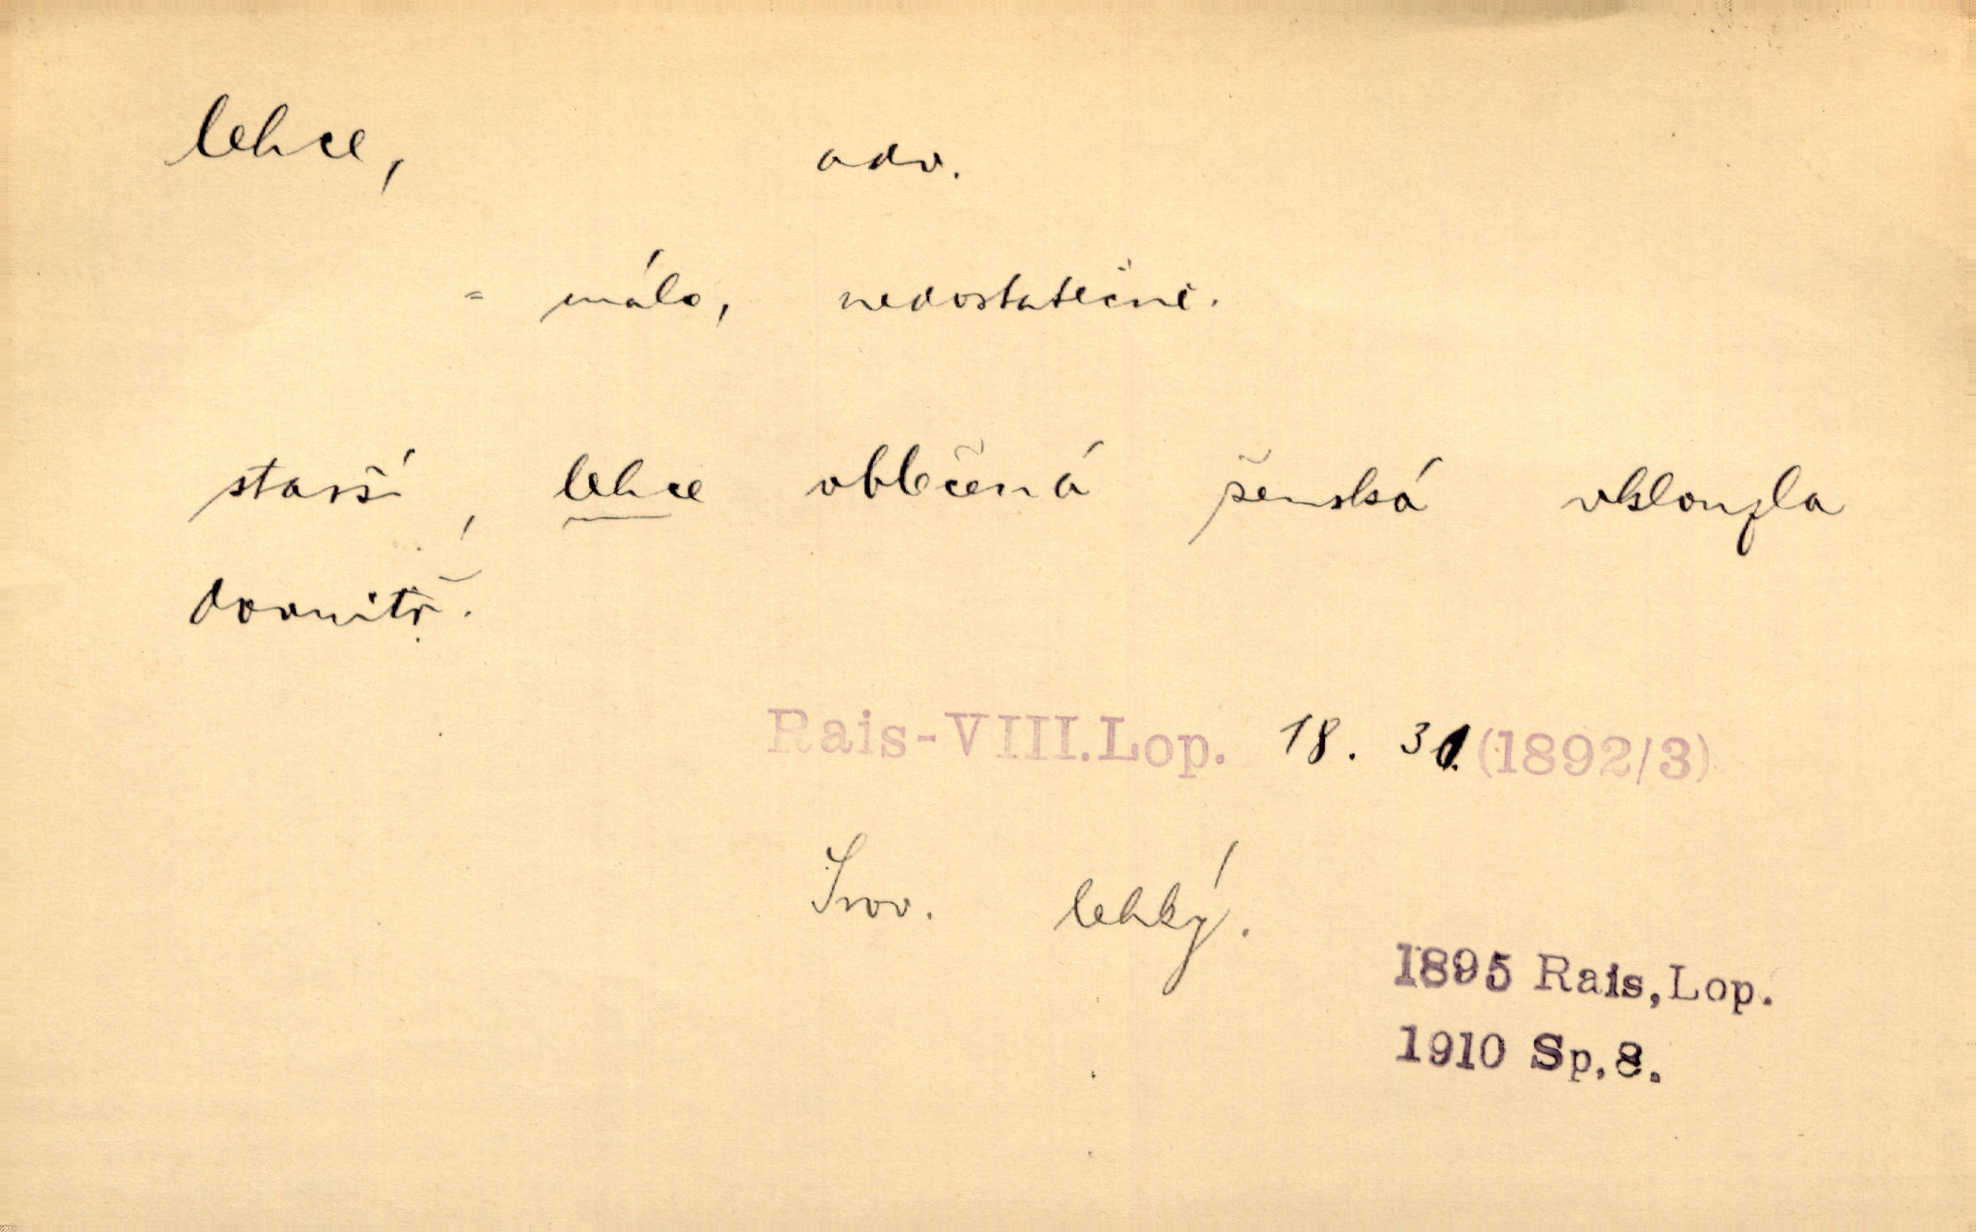 lehce, adv.
= málo, nedostatečně.
starší, lehce oblečená ženská vklouzla
dovnitř.
Rais-VIII.Lop. 18. 31. (1892/3)
Srov. lehký.
1895 Rais, Lop.
1910 Sp.8.